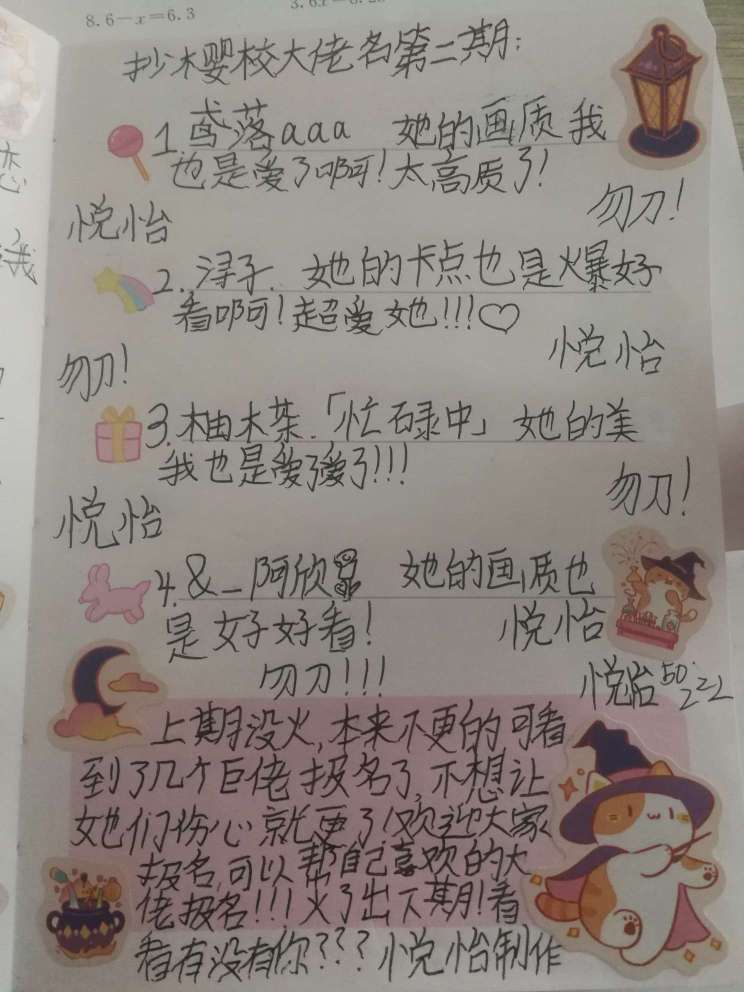 8.6-x=6.3
抄木婴校大佬名第二期:
1.鸢落aaa 她的画质我
也是爱了啊!太高质了!
悦怡
勿刀!
2.浔子. 她的卡点也是爆好
看啊!超爱她!!!♡
勿刀!
悦怡
3.柚木茶.「忙碌中」 她的美
我也是爱了爱了!!!
勿刀!
悦怡
4.&_阿欣 她的画质也
是好好看!
悦怡
勿刀!!!
悦怡
上期没火,本来不更的可看
到了几个巨佬报名了,不想让
她们伤心就更了!欢迎大家
报名,可以帮自己喜欢的大
佬报名!!!火了出下期!看
看有没有你???悦怡制作